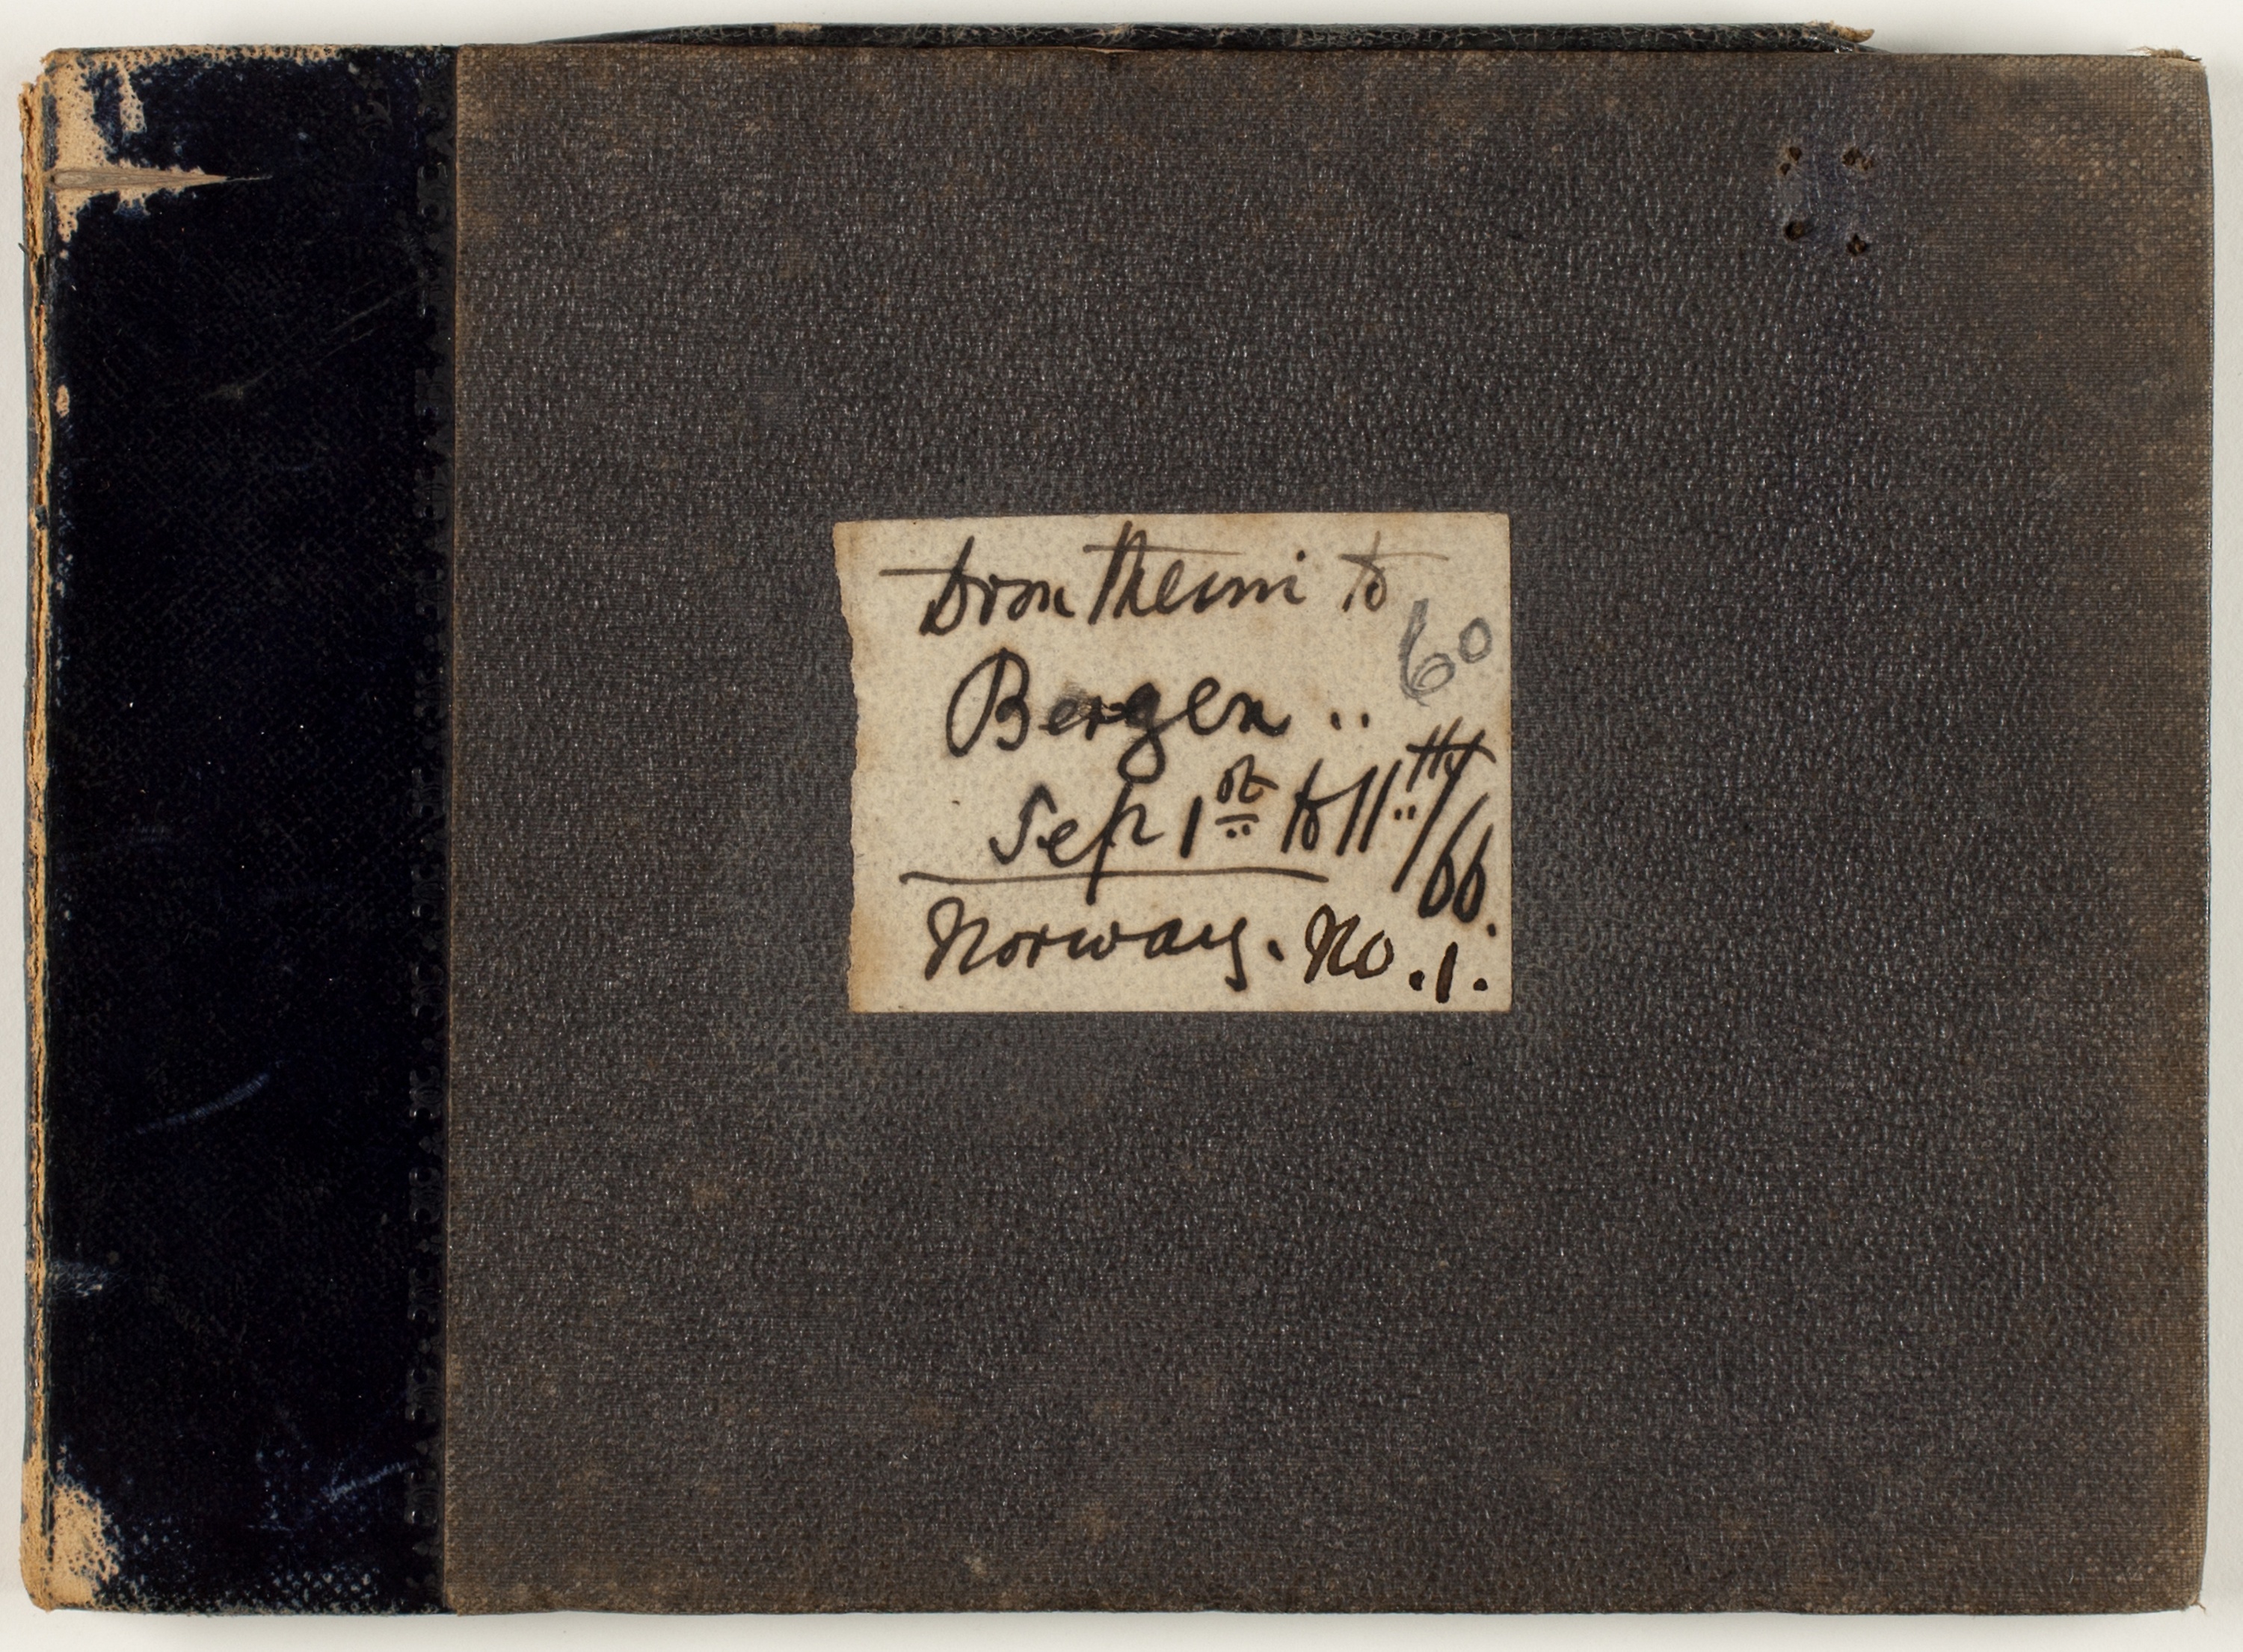 Drontheim to
60
Bergen..
Sep 1st to 11th/66.
Norway. No. 1.